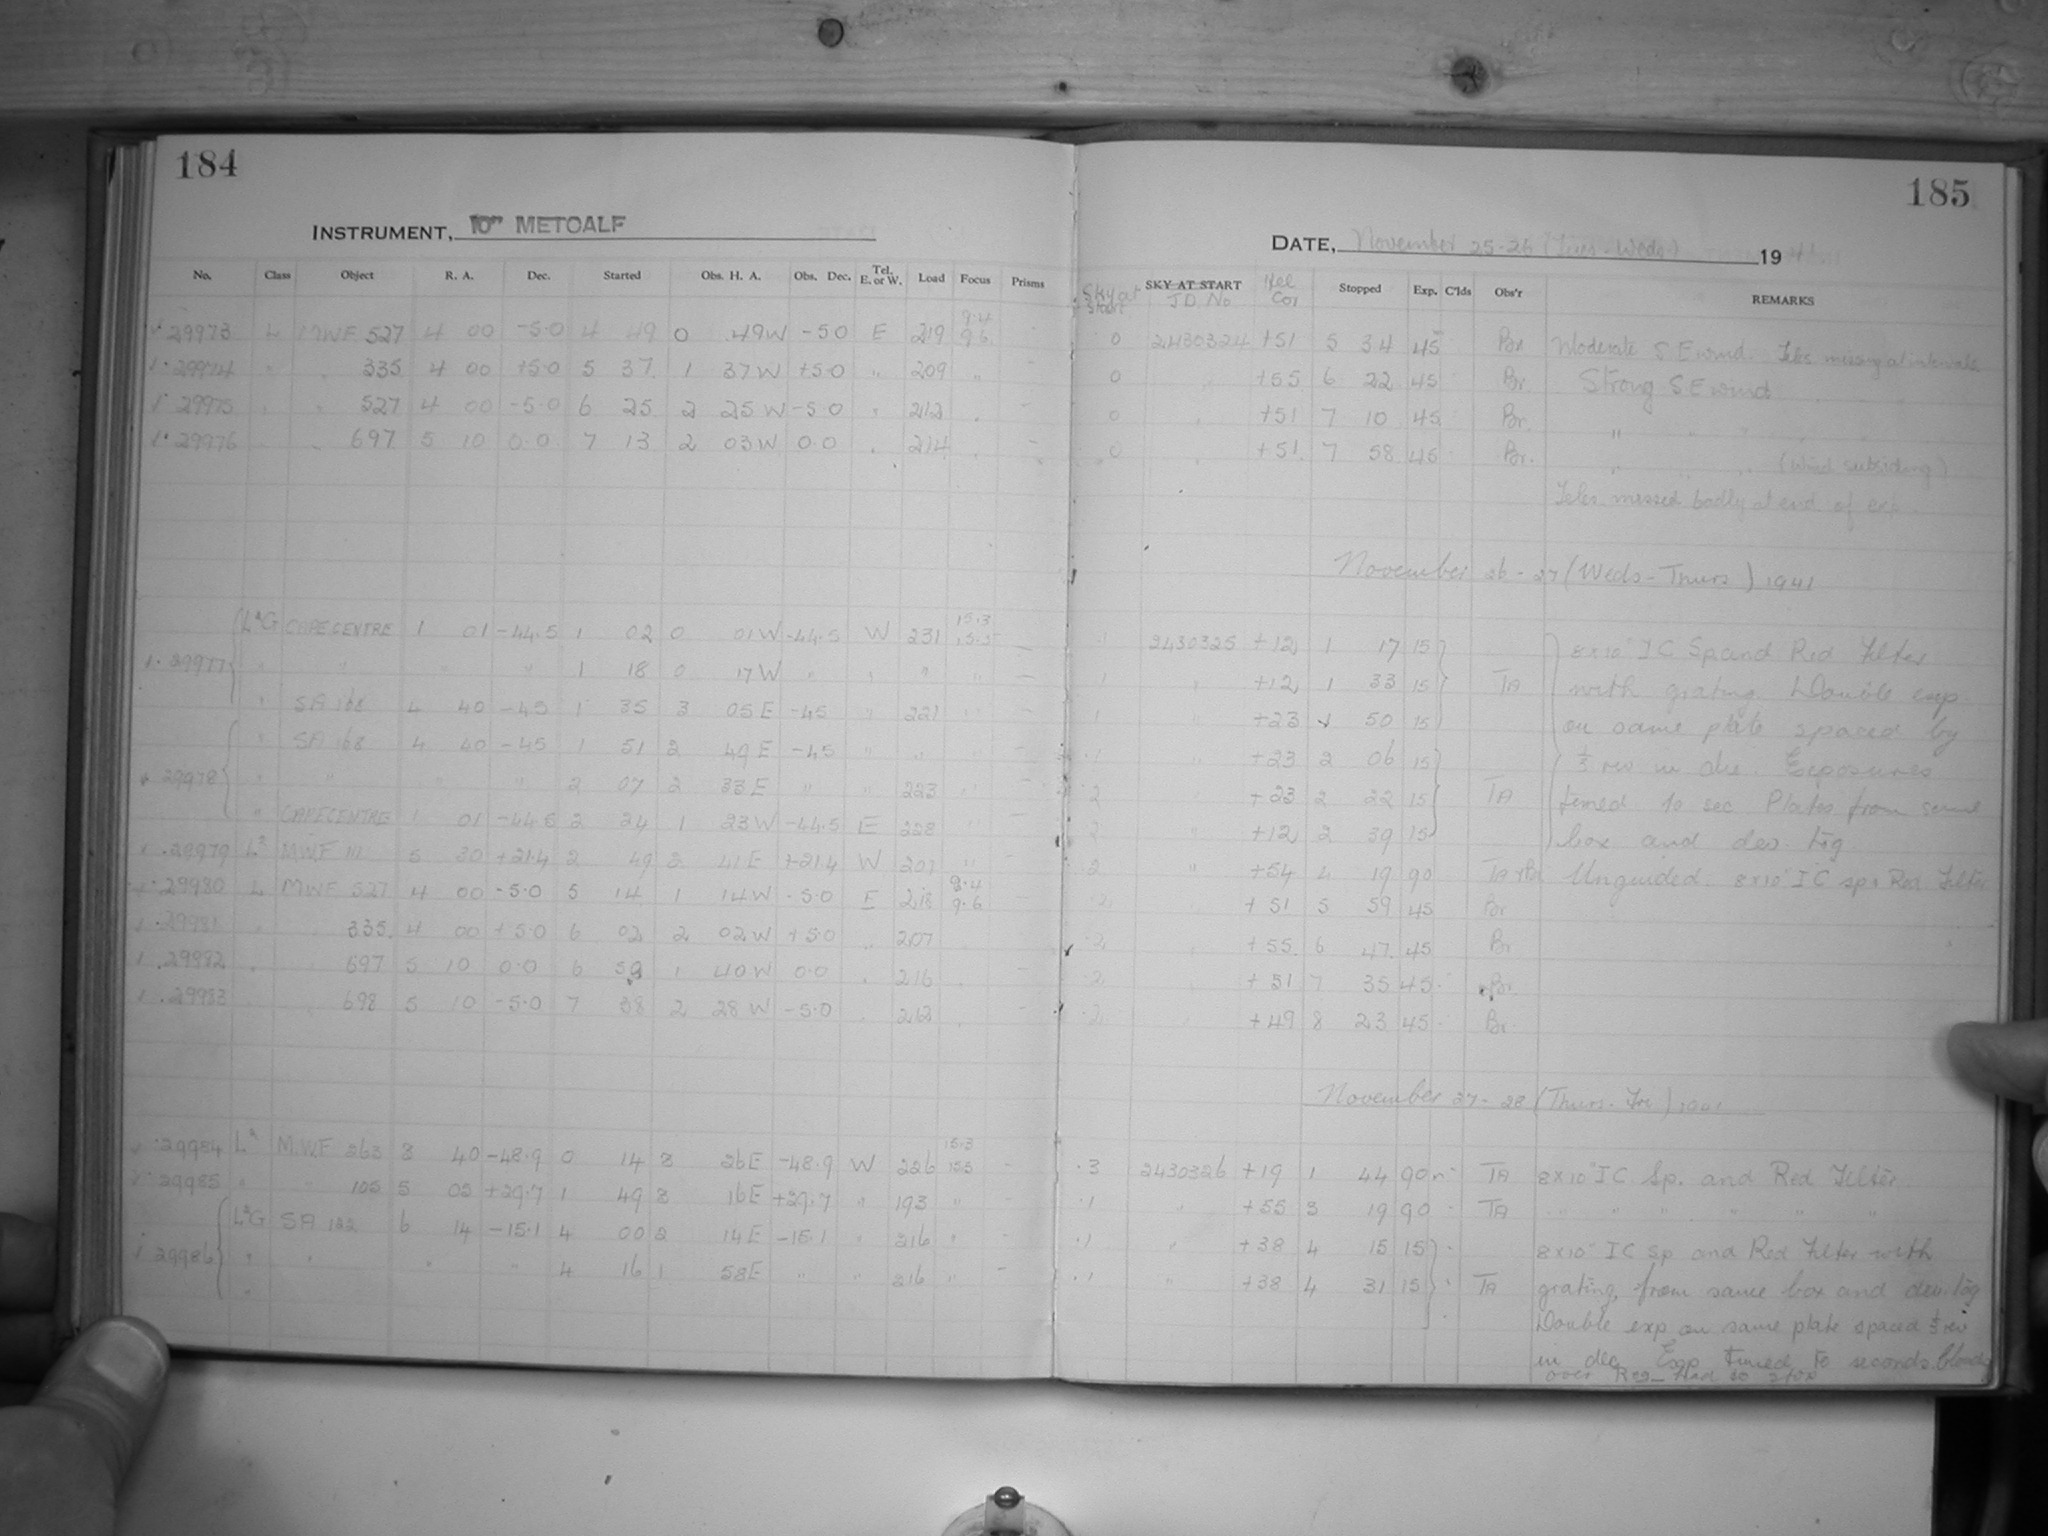 184
INSTRUMENT, 10" METCALF
No. Class Object R. A. Dec. Started Obs. H. A. Obs. Dec. Tel. E. or W. Load Focus Prisms
29973 L MWF 527 4 00 -5.0 4 49 0 49W -5.0 E 219 9.4 9.6
29974 " " 335 4 00 +5.0 5 37 1 37W +5.0 " 209 "
29975 " " 527 4 00 -5.0 6 25 2 25W -5.0 " 212 "
29976 " " 697 5 10 0.0 7 13 2 03W 0.0 " 214 " -
L²G CAPE CENTRE 1 01 -44.5 1 02 0 01W -44.5 W 231 15.3 15.5 -
29977 " " " " 1 18 0 17W " " " " -
" SA 168 4 40 -45 1 35 3 05E -45 " 221 "
" SA 168 4 40 -45 1 51 2 49E -45 " " " -
29978 " " " " 2 07 2 33E " " 223 " -
" CAPE CENTRE 1 01 -44.5 2 24 1 23W -44.5 E 228 "
29979 L² MWF 111 5 30 +21.4 2 49 2 41E +21.4 W 201 " -
29980 L MWF 527 4 00 -5.0 5 14 1 14W -5.0 E 218 9.4 9.6 -
29981 " 335 4 00 +5.0 6 02 2 02W +5.0 " 207
29982 " 697 5 10 0.0 6 50 1 40W 0.0 " 216 -
29983 " 698 5 10 -5.0 7 38 2 28W -5.0 " 212 -
29984 L² M.W.F 263 8 40 -48.9 0 14 8 26E -48.9 W 226 15.3 15.5 -
29985 " " 105 5 05 +29.7 1 49 3 16E +29.7 " 193 " -
L²G SA 122 6 14 -15.1 4 00 2 14E -15.1 " 216 "
29986 " " " " 4 16 1 58E " " 216 " -
185
DATE, November 25-26 (Tues-Weds) 1941
Sky at Start SKY AT START J D No Hel Cor Stopped Exp. C'lds Obs'r REMARKS
0 2430324 +51 5 34 45 Br Moderate S E wind. Teles missing at intervals
0 " +55 6 22 45 Br. Strong S E wind
0 " +51 7 10 45 Br. " " "
0 " +51 7 58 45 Br. " " " (Wind subsiding)
Teles. missed badly at end of exp.
November 26-27 (Weds-Thurs) 1941
" 2430325 +12 1 17 15 8x10" I C Sp and Red Filter
" " +12 1 33 15 TA with grating. Double exp
" " +23 1 50 15 on same plate spaced by
.1 " +23 2 06 15 ½ rev in dec. Exposures
.2 " +23 2 22 15 TA timed to sec Plates from same
.2 " +12 2 39 15 box and dev. tog
.2 " +54 4 19 90 Unguided. 8x10" I C sp & Red Filter
.2 " +51 5 59 45 Br
.2 " +55 6 47 45 Br
.2 " +51 7 35 45 Br
.2 " +49 8 23 45 Br.
November 27-28 (Thurs-Fri) 1941
.3 2430326 +19 1 44 90 TA 8x10" I C Sp. and Red Filter
.1 " +55 3 19 90 TA " " " " " "
.1 " +38 4 15 15 8x10" I C Sp and Red Filter with
.1 " +38 4 31 15 TA grating, from same box and dev. tog
Double exp on same plate spaced ½ rev
in dec Exp timed to seconds. Clouds
over Reg. Had to stop